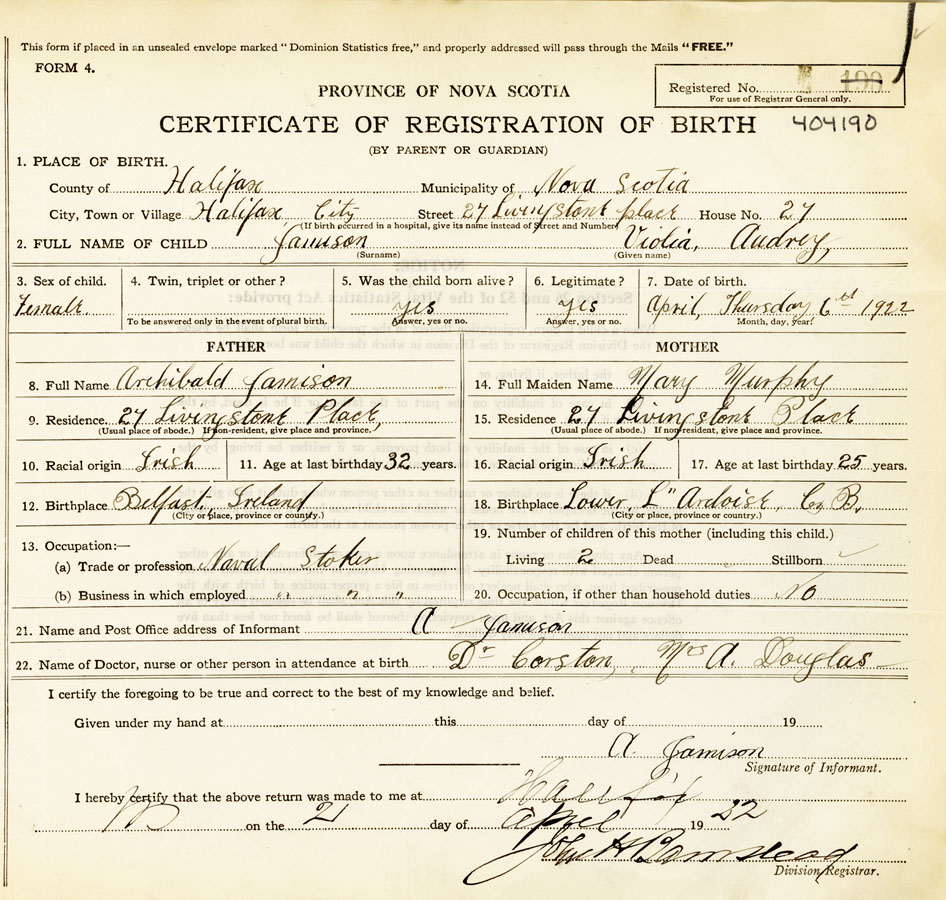 This form if placed in an unsealed envelope marked "Dominion Statistics free," and properly addressed will pass through the Mails "FREE."
FORM 4.
Registered No. 190
For use of Registrar General only.
PROVINCE OF NOVA SCOTIA
CERTIFICATE OF REGISTRATION OF BIRTH 404190
(BY PARENT OR GUARDIAN)
1. PLACE OF BIRTH.
County of Halifax Municipality of Nova Scotia
City, Town or Village Halifax City Street 27 Livingstone place House No. 27
(If birth occurred in a hospital, give its name instead of Street and Number)
2. FULL NAME OF CHILD Jamison Violia, Audrey,
(Surname) (Given name)
3. Sex of child. 4. Twin, triplet or other? 5. Was the child born alive? 6. Legitimate? 7. Date of birth.
Female. yes yes April, Thursday 6 1922
To be answered only in the event of plural birth. Answer, yes or no. Answer, yes or no. Month, day, year.
FATHER MOTHER
8. Full Name Archibald Jamison 14. Full Maiden Name Mary Murphy
9. Residence. 27 Livingstone Place, 15. Residence 27 Livingstone Place
(Usual place of abode.) If non-resident, give place and province. (Usual place of abode.) If non-resident, give place and province.
10. Racial origin Irish 11. Age at last birthday 32 years. 16. Racial origin Irish 17. Age at last birthday 25 years.
12. Birthplace Belfast, Ireland 18. Birthplace Lower L" Ardoise, C, B.
(City or place, province or country.) (City or place, province or country.)
13. Occupation:— 19. Number of children of this mother (including this child.)
(a) Trade or profession Naval Stoker Living 2 Dead Stillborn
(b) Business in which employed " " " 20. Occupation, if other than household duties No
21. Name and Post Office address of Informant A Jamison
22. Name of Doctor, nurse or other person in attendance at birth Dr Corston, Mrs A. Douglas
I certify the foregoing to be true and correct to the best of my knowledge and belief.
Given under my hand at this day of 19
A. Jamison
Signature of Informant.
I hereby certify that the above return was made to me at Halifax
on the 21 day of April 19 22
John H Barnstead
Division Registrar.